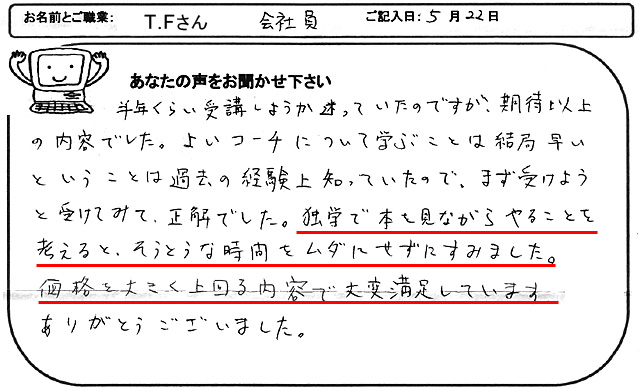 お名前とご職業: T.Fさん 会社員 ご記入日: 5月22日
あなたの声をお聞かせ下さい
半年くらい受講しようか迷っていたのですが、期待以上
の内容でした。よいコーチについて学ぶことは結局早い
ということは過去の経験上知っていたので、まず受けよう
と受けてみて、正解でした。独学で本を見ながらやることを
考えると、そうとうな時間をムダにせずにすみました。
価格を大きく上回る内容で大変満足しています
ありがとうございました。